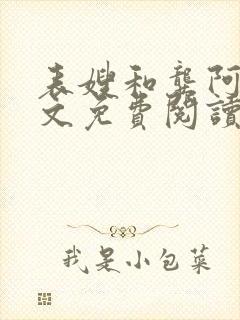 表嫂和龚阿
文免費閱讀
我是小包菜